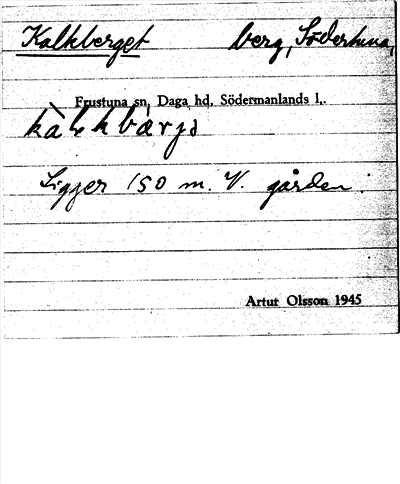 Kalkberget berg, Södertuna,
Frustuna sn, Daga hd, Södermanlands l.
Ligger 150 m. V. gården.
Artur Olsson 1945